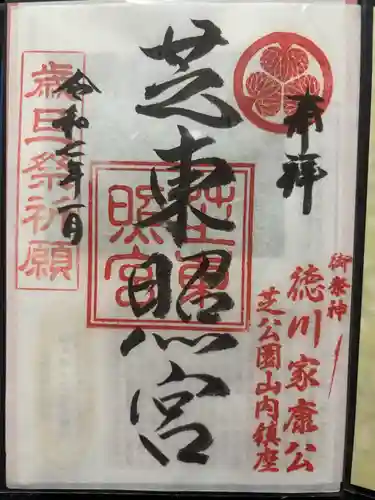 奉拝
御祭神
徳川家康公
芝公園山内鎮座
芝東照宮
芝東照宮
令和二年一月
歳旦祭祈願